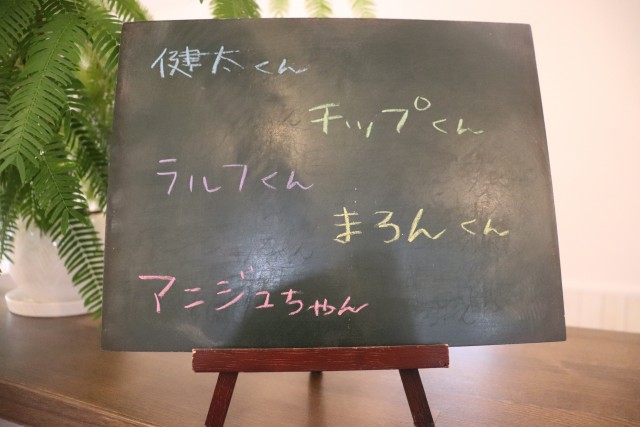 健太くん
チップくん
ラルフくん
まろんくん
マニジュちゃん